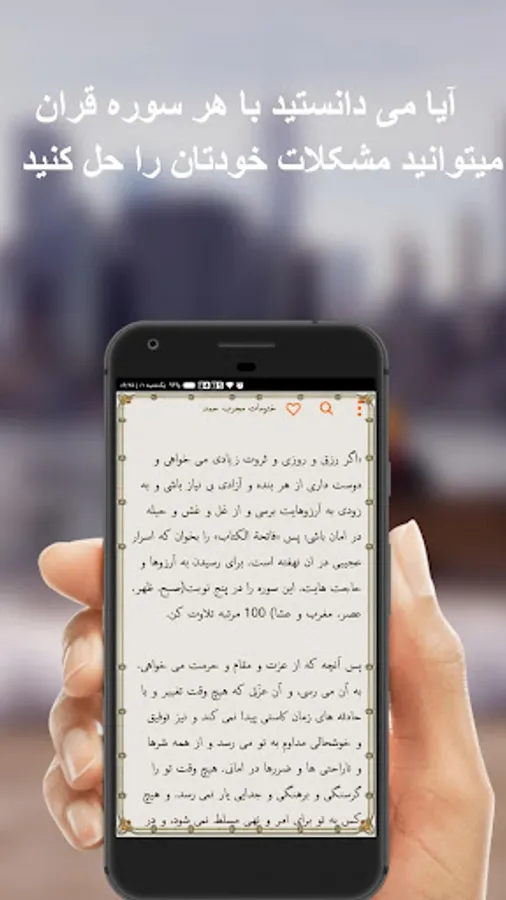 آیا می دانستید با هر سوره قران
میتوانید مشکلات خودتان را حل کنید
ختومات مجرب حمد
داگر رزق و روزی و ثروت زیادی می خواهی و
دوست داری از هر بنده و آزادی بی نیاز باشی و به
زودی به آرزوهایت برسی و از غل و غش و حیله
در امان باشی؛ پس «فاتحة الکتاب» را بخوان که اسرار
عجیبی در آن نهفته است. برای رسیدن به آرزوها و
حاجت هایت، این سوره را در پنج نوبت(صبح، ظهر،
عصر، مغرب و عشا) 100 مرتبه تلاوت کن.
پس آنچه که از عزت و مقام و حرمت می خواهی،
به آن می رسی، و آن عزّی که هیچ وقت تغییر و یا
حادثه های زمان کاستی پیدا نمی کند و نیز توفیق
و خوشحالی مداوم به تو می رسد و از همه شرها
و ناراحتی ها و ضررها در امانی. هیچ وقت تو را
گرسنگی و برهنگی و جدایی یار نمی رسد. و هیچ
کس به تو برای امر و نهی مسلط نمی شود، و در